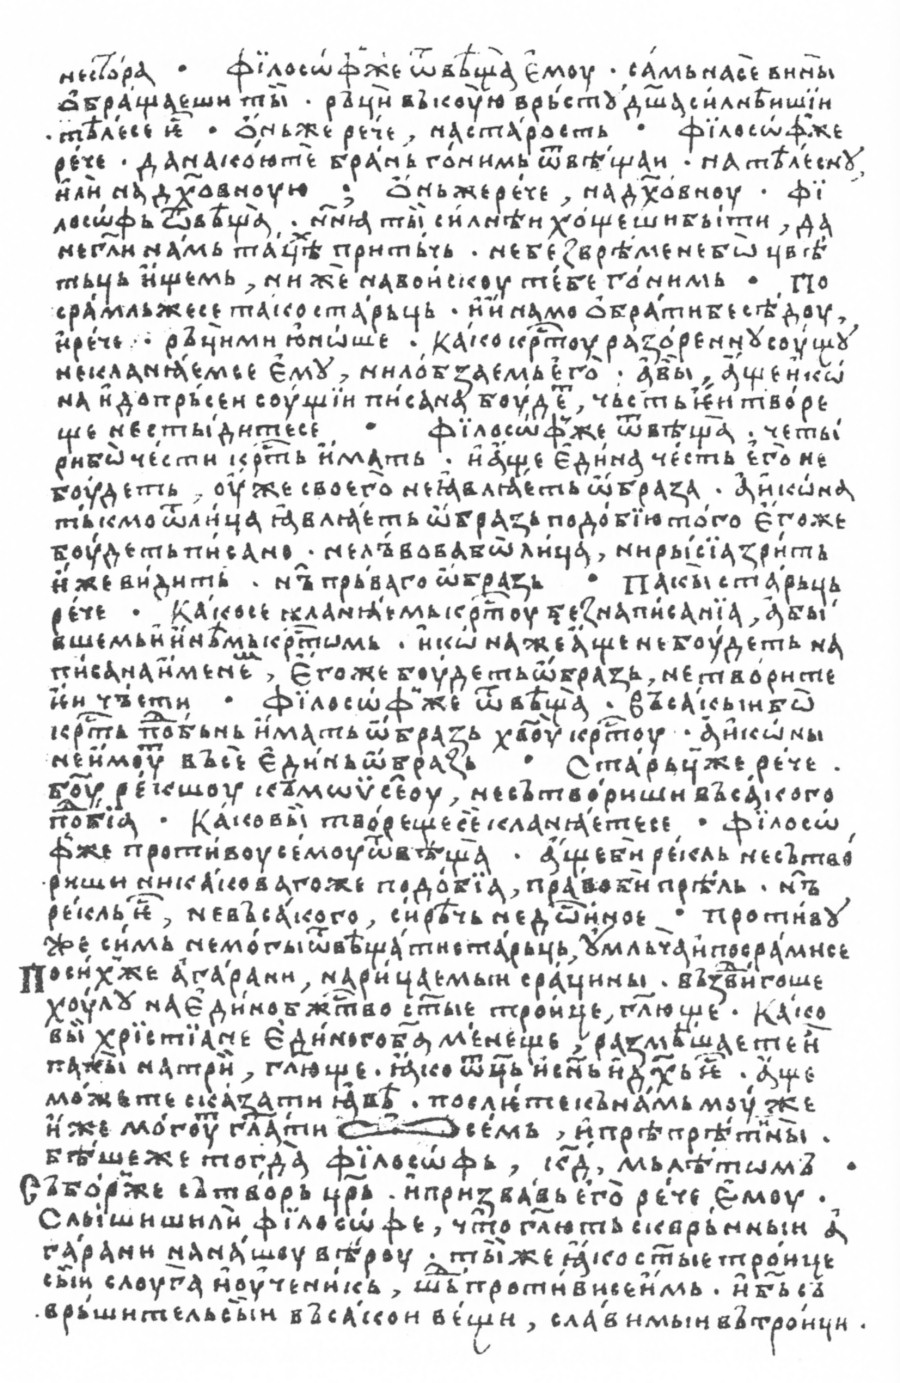 несто́ра · Фїлосѡ́ф же ѿвѣща̀ є҆моу · са́мь на сѐ вины̀
ѻ҆браща́еши ты̏ · рь́ци въ коу́ю врь́сту д҃ша си́лнѣншїи
тѣ́лесе и҆̑ · Ѻ҆́нь же ре́че , на ста́рость · Фїлосѡ́ф же
ре́че · да на кою́ тѐ бра́нь го́нимь ѿвѣ́щаи · на тѣле́сну ,
и҆лѝ на дх҃о́вноую ; Ѻ҆́нь же ре́че , на дх҃о́вноу · Фї
лосѡ́фь ѿвѣ́ща̀ · нн҃ꙗ ты̏ си́лнѣи хо́щеши бы́ти , да
не гл҃и на́мь та́ц҃ѣ при́тьчь · не бе́з врѣ́мене бѡ̀ цвѣ́
тьць и҆́щемь , ни же̏ на вои́скоу те́бе го́нимь · По
сра́мль же се та́ко ста́рьць · и҆ и҆на́мо ѻ҆бра́ти бесѣ́доу ,
и҆ ре́че · рь́ци ми ю҆́нѡше · Ка́ко крⷭ҇тоу разо́ренну соу́щу
не кланꙗ́емь се є҆му̀ , ни лоб'за́емь є҆го̀ · а҆ вы̏ , а҆́ще и҆ кѡ́
на и҆ до прь́сеи соу́щїи пи́сана боу́деть , чь́сть є҆́и тво́ре
ще не сты́дите се · Фїлосѡ́ф же ѿвѣ́ща̀ · четы́
ри бѡ̀ че́сти крⷭ҇ть и҆́мать · и҆ а҆́ще є҆ди́на че́сть є҆го̀ не
боу́деть , оу҆́же своего̀ не ꙗ҆влꙗ́еть ѡ҆́браза · а҆ и҆кѡ́на
ть́кмо ѿ ли́ца ꙗ҆влꙗ́еть ѡ҆́бразь подо́бїю то́го є҆го́же
боу́деть пи́сано · не ль́вова бѡ̀ ли́ца , ни ры́сїа зри́ть
и҆́же ви́дить · нь̏ пръ́ваго ѡ҆́бразь · Па́кы ста́рьць
ре́че · Ка́ко се кланꙗ́емь крⷭ҇тоу без написа́нїа , а҆ бы́
вшемь и҆ и҆нѣ́мь крⷭ҇томь · и҆кѡ́на же а҆́ще не боу́деть на
пи́сана и҆́мене , є҆го́же боу́деть ѡ҆́бразь , не тво́рите
є҆́и чь́сти · Фїлосѡ́ф же ѿвѣ́ща̀ · Въса́кыи бѡ̀
крⷭ҇ть подо́бьнь и҆́мать ѡ҆́бразь хв҃оу̀ крⷭ҇тоу · а҆ и҆кѡ́ны
не и҆́моуть въсѐ є҆ди́нь ѡ҆́бразь · Ста́рьць же ре́че .
бг҃оу̀ ре́кшоу къ мѡѵ̈се́ѡу , не сътво́риши въса́кого
подо́бїа · Ка́ко вы̏ тво́реще сѐ кланꙗ́ете се · Фїлосѡ́
ф же проти́воу се́моу ѿвѣ́ща̀ · а҆́ще бы̀ ре́кль не сътво́
риши ника́ковагоже подо́бїа , пра́во бы̀ прѣ́ль · нь̏
ре́кль и҆̑ , не въса́кого , си́рѣчь не досто́иное · Проти́ву
же си́мь не мо́гы ѿвѣща́ти ста́рьць , оу҆мльча̀ и҆ посра́ми се
По си́х же а҆га́рани , нари́цаемыи сра́цины · въздви́гоше
хоу́лу на є҆ди́но бж҃ство ст҃ые тро́ице , гл҃юще · Ка́ко
вы̏ хрїстїа́не є҆ди́ного бг҃а мне́ще , размѣ́шаете и҆̀
па́кы на трѝ , гл҃юще · ꙗ҆́ко ѿц҃ь и҆ сн҃ь и҆ дх҃ь и҆̑ · а҆́ще
мо́жете сказа́ти ꙗ҆́вѣ . посли́те къ на́мь моу́же
и҆́же мо́гоуть гл҃ати ѡ се́мь , и҆ прѣпрѣ́ти ны̀ .
бѣ́ше же тогда̀ фїлосѡ́фь , к҃д , мь лѣ́томъ ·
Съ́борь же сътво́рь цр҃ь . и҆ призва́вь є҆го̀ ре́че є҆моу .
Слы́шиши ли фїлосѡ́фе , что̀ гл҃ють сквръ́нныи а҆
га́рани на на́шоу вѣ́роу . ты̀ же ꙗ҆́ко ст҃ые тро́ице
сы́и слоуга̀ и҆ оу҆чени́кь , шь́дь проти́ви се и҆́мь · и҆ бг҃ь съ
врьши́тель сы́и въса́кои ве́щи , сла́вимыи въ тро́ици .